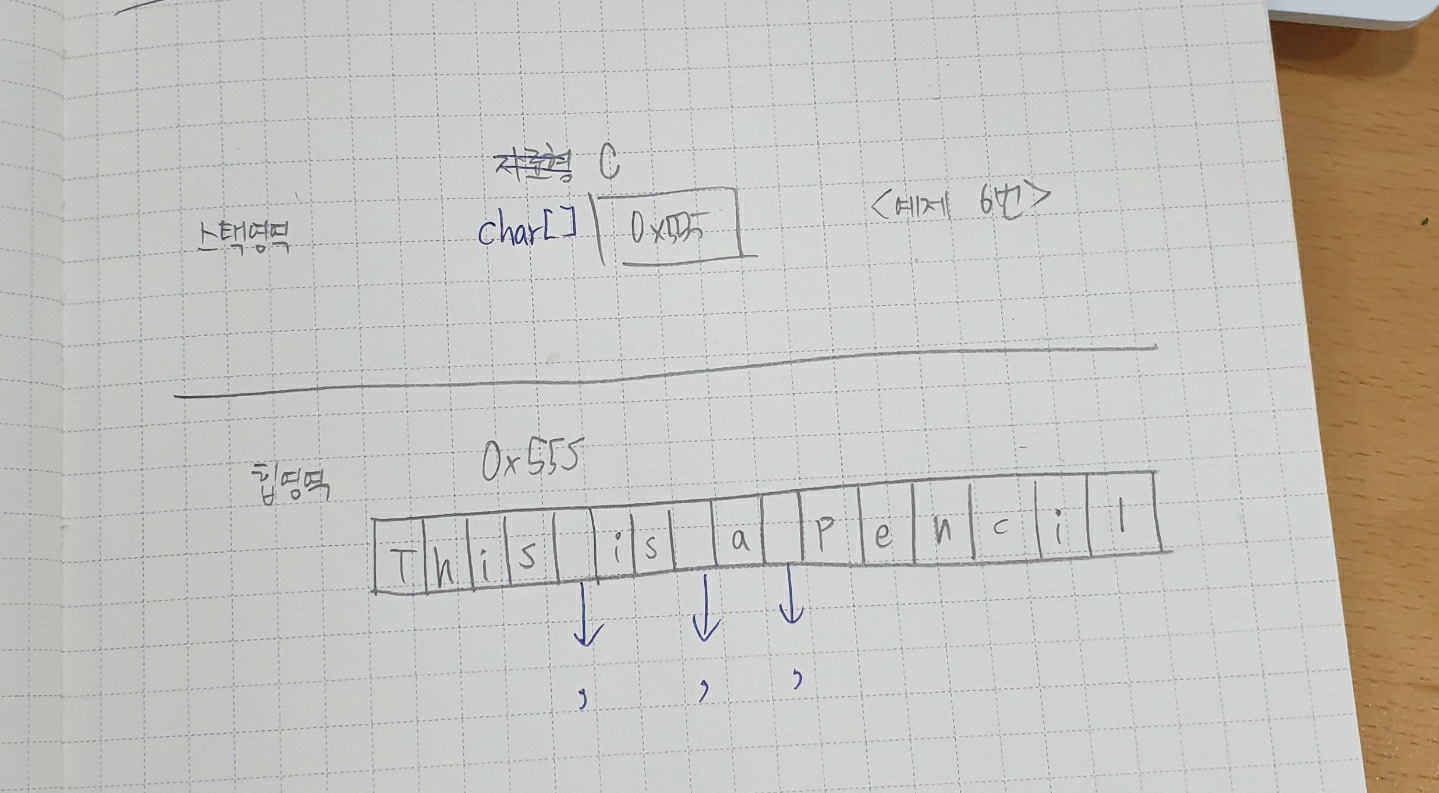 자료형 C
스택영역 char[] 0x555 <예제 6번>
힙영역 0x555
This is a pencil
, , ,